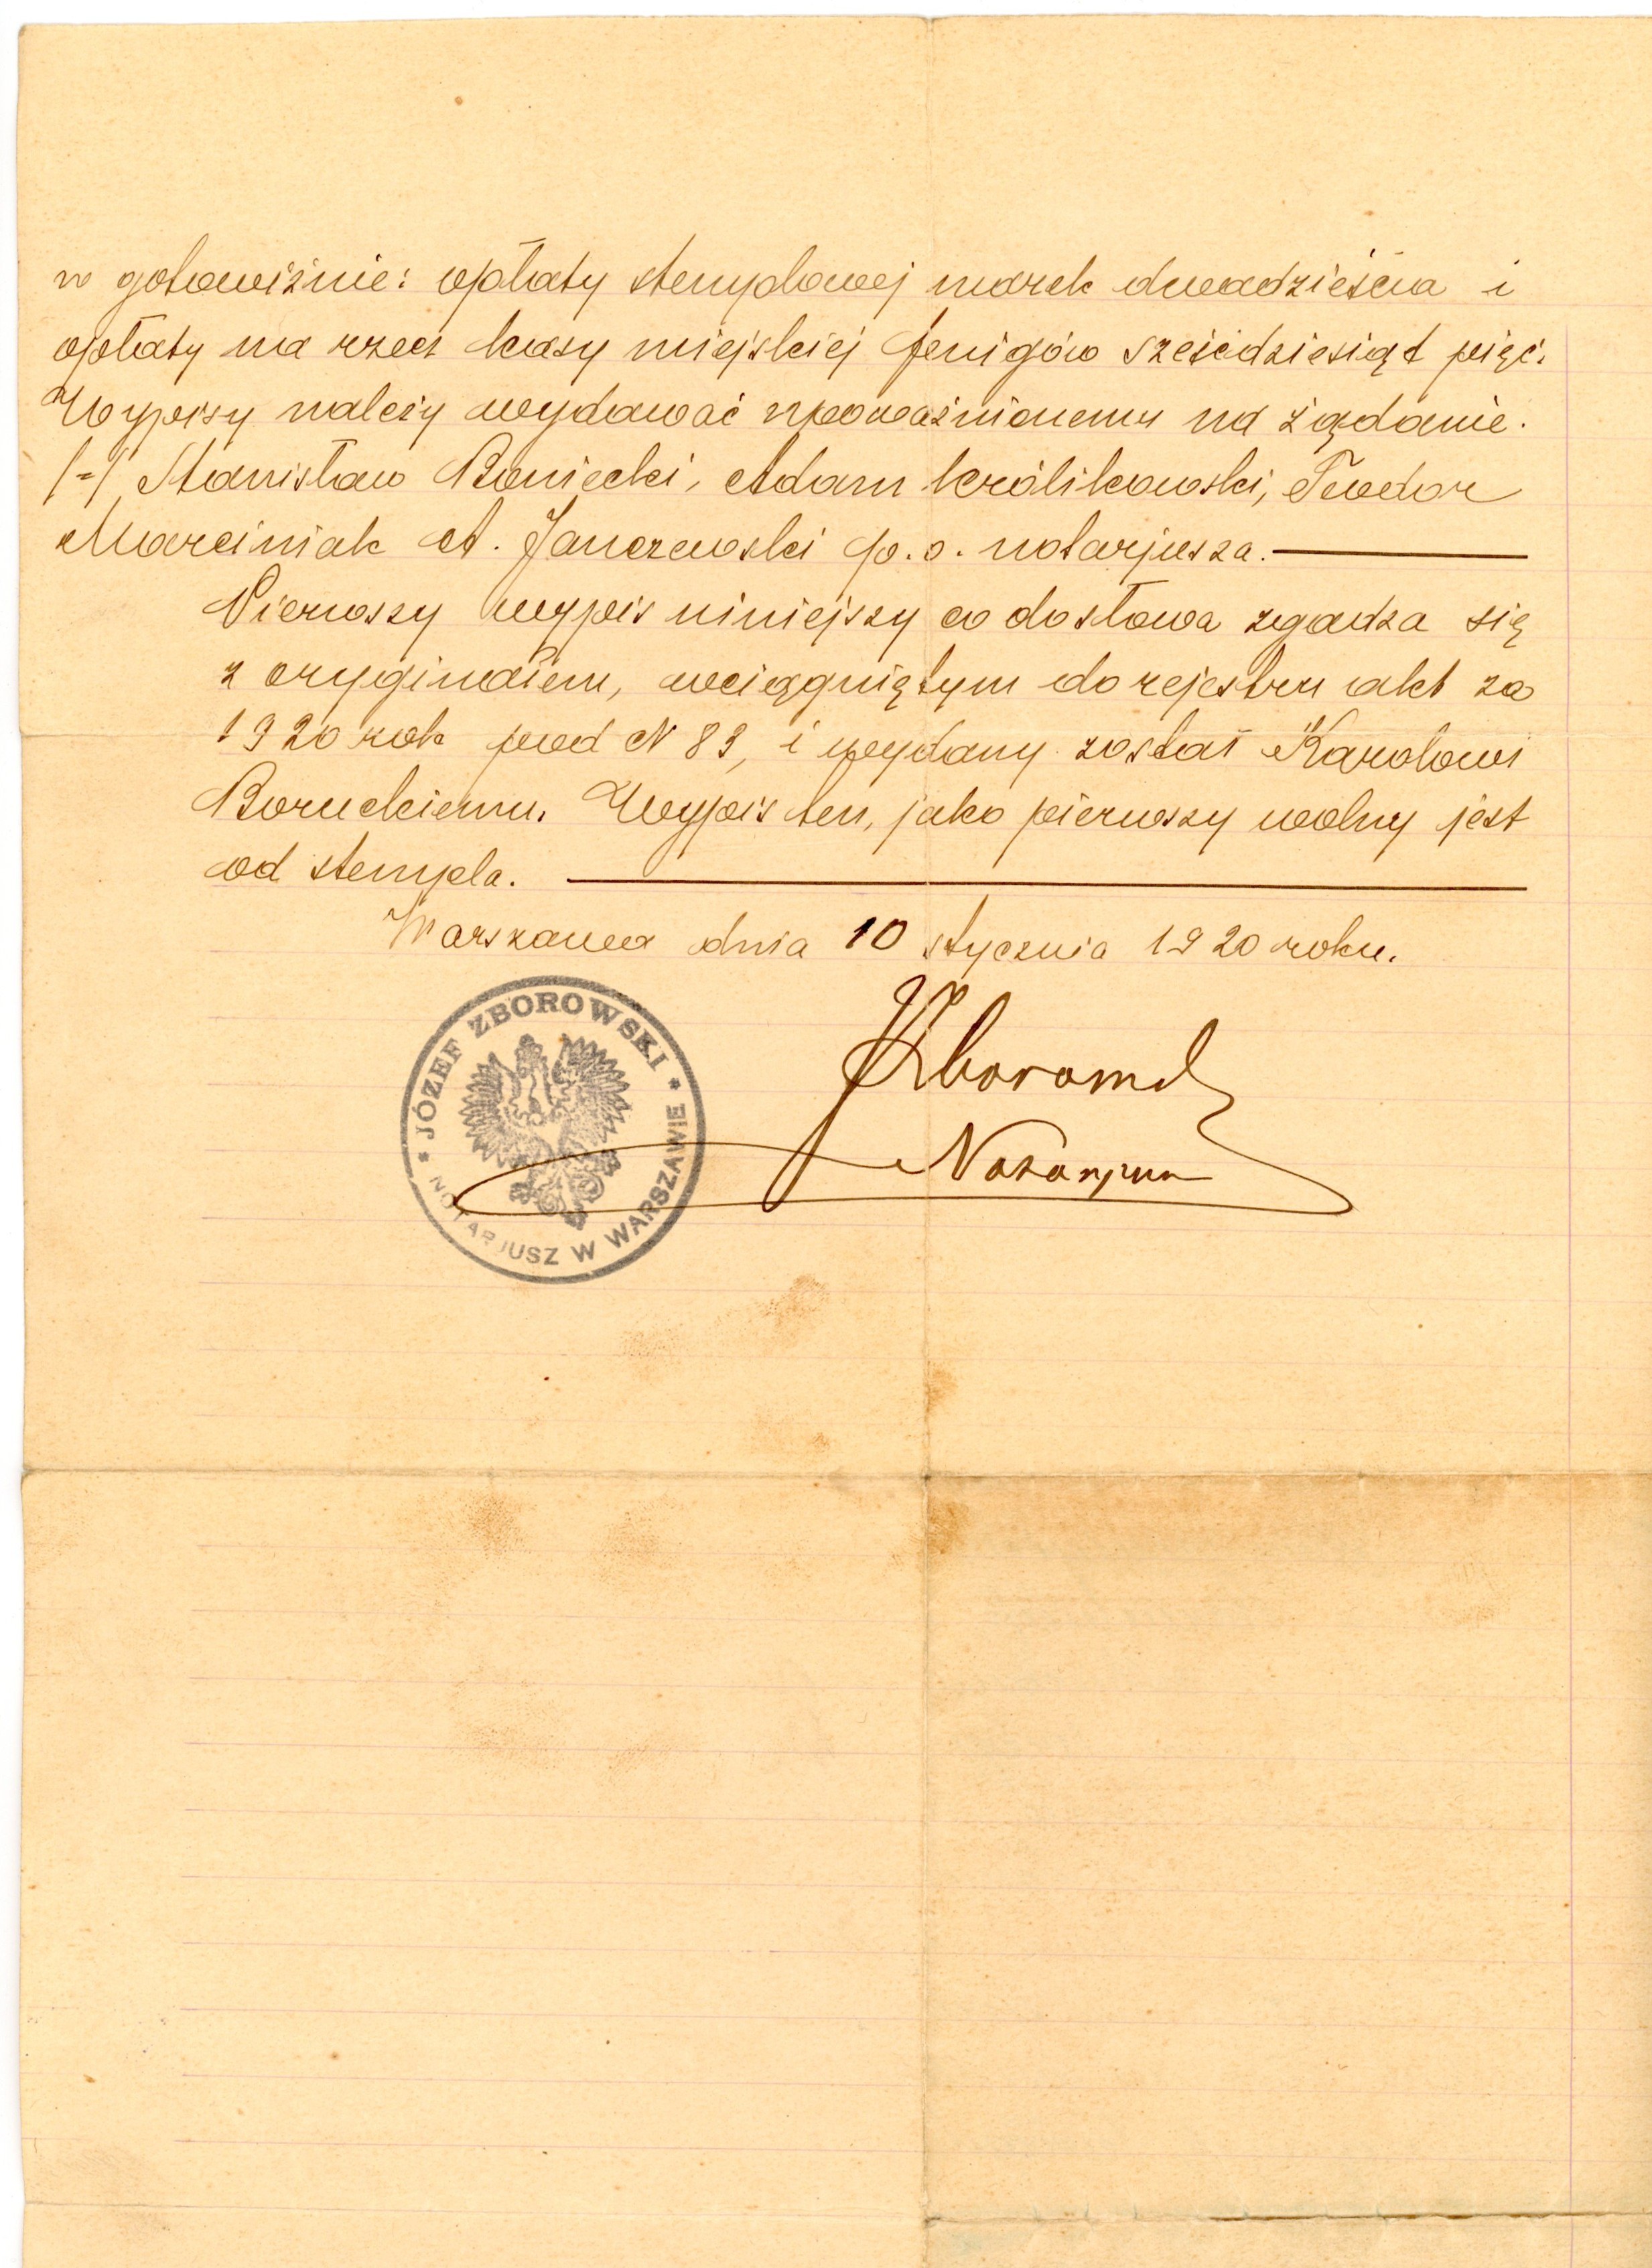 w gotowiźnie: opłaty stemplowej marek dwadzieścia i
opłaty na rzecz kasy miejskiej fenigów sześćdziesiąt pięć.
Wypisy należy wydawać upoważnionemu na żądanie.
/-/ Stanisław Boniecki, Adam Królikowski, Teodor
Marciniak A. Janczewski p.o. notarjusza.
Pierwszy wypis niniejszy co do słowa zgadza się
z oryginałem, wciągniętym do rejestru akt za
1920 rok pod N 83, i wydany został Karolowi
Boruckiemu. Wypis ten, jako pierwszy wolny jest
od stempla.
Warszawa dnia 10 stycznia 1920 roku.
JZborowski
Notarjusz
* JÓZEF ZBOROWSKI *
NOTARJUSZ W WARSZAWIE